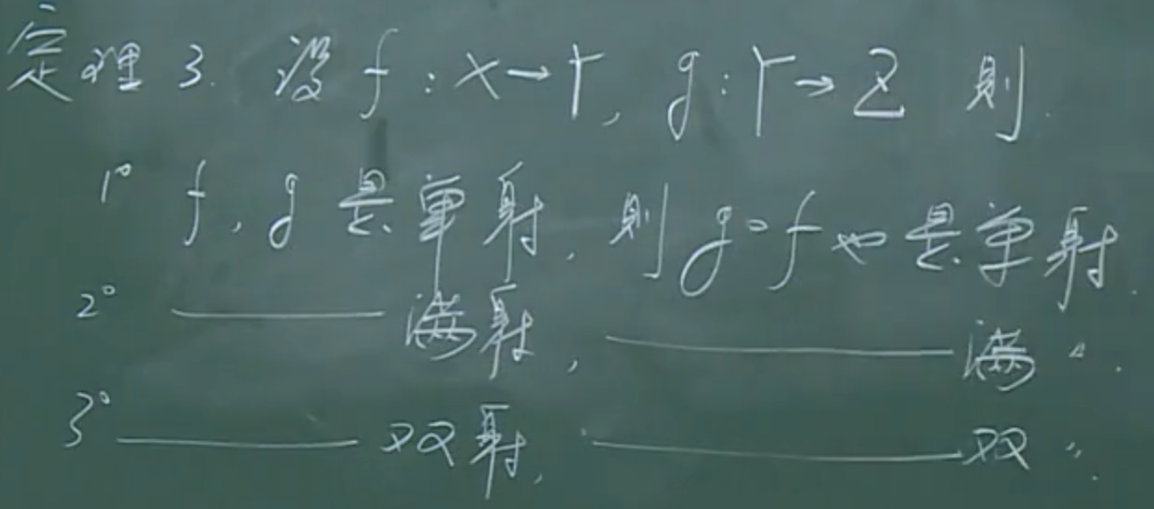 定理3. 设 f:X→Y, g:Y→Z 则.
1° f, g 是单射, 则 g∘f 也是单射.
2° ———— 满射, ———— 满〃.
3° ———— 双射, ———— 双〃.